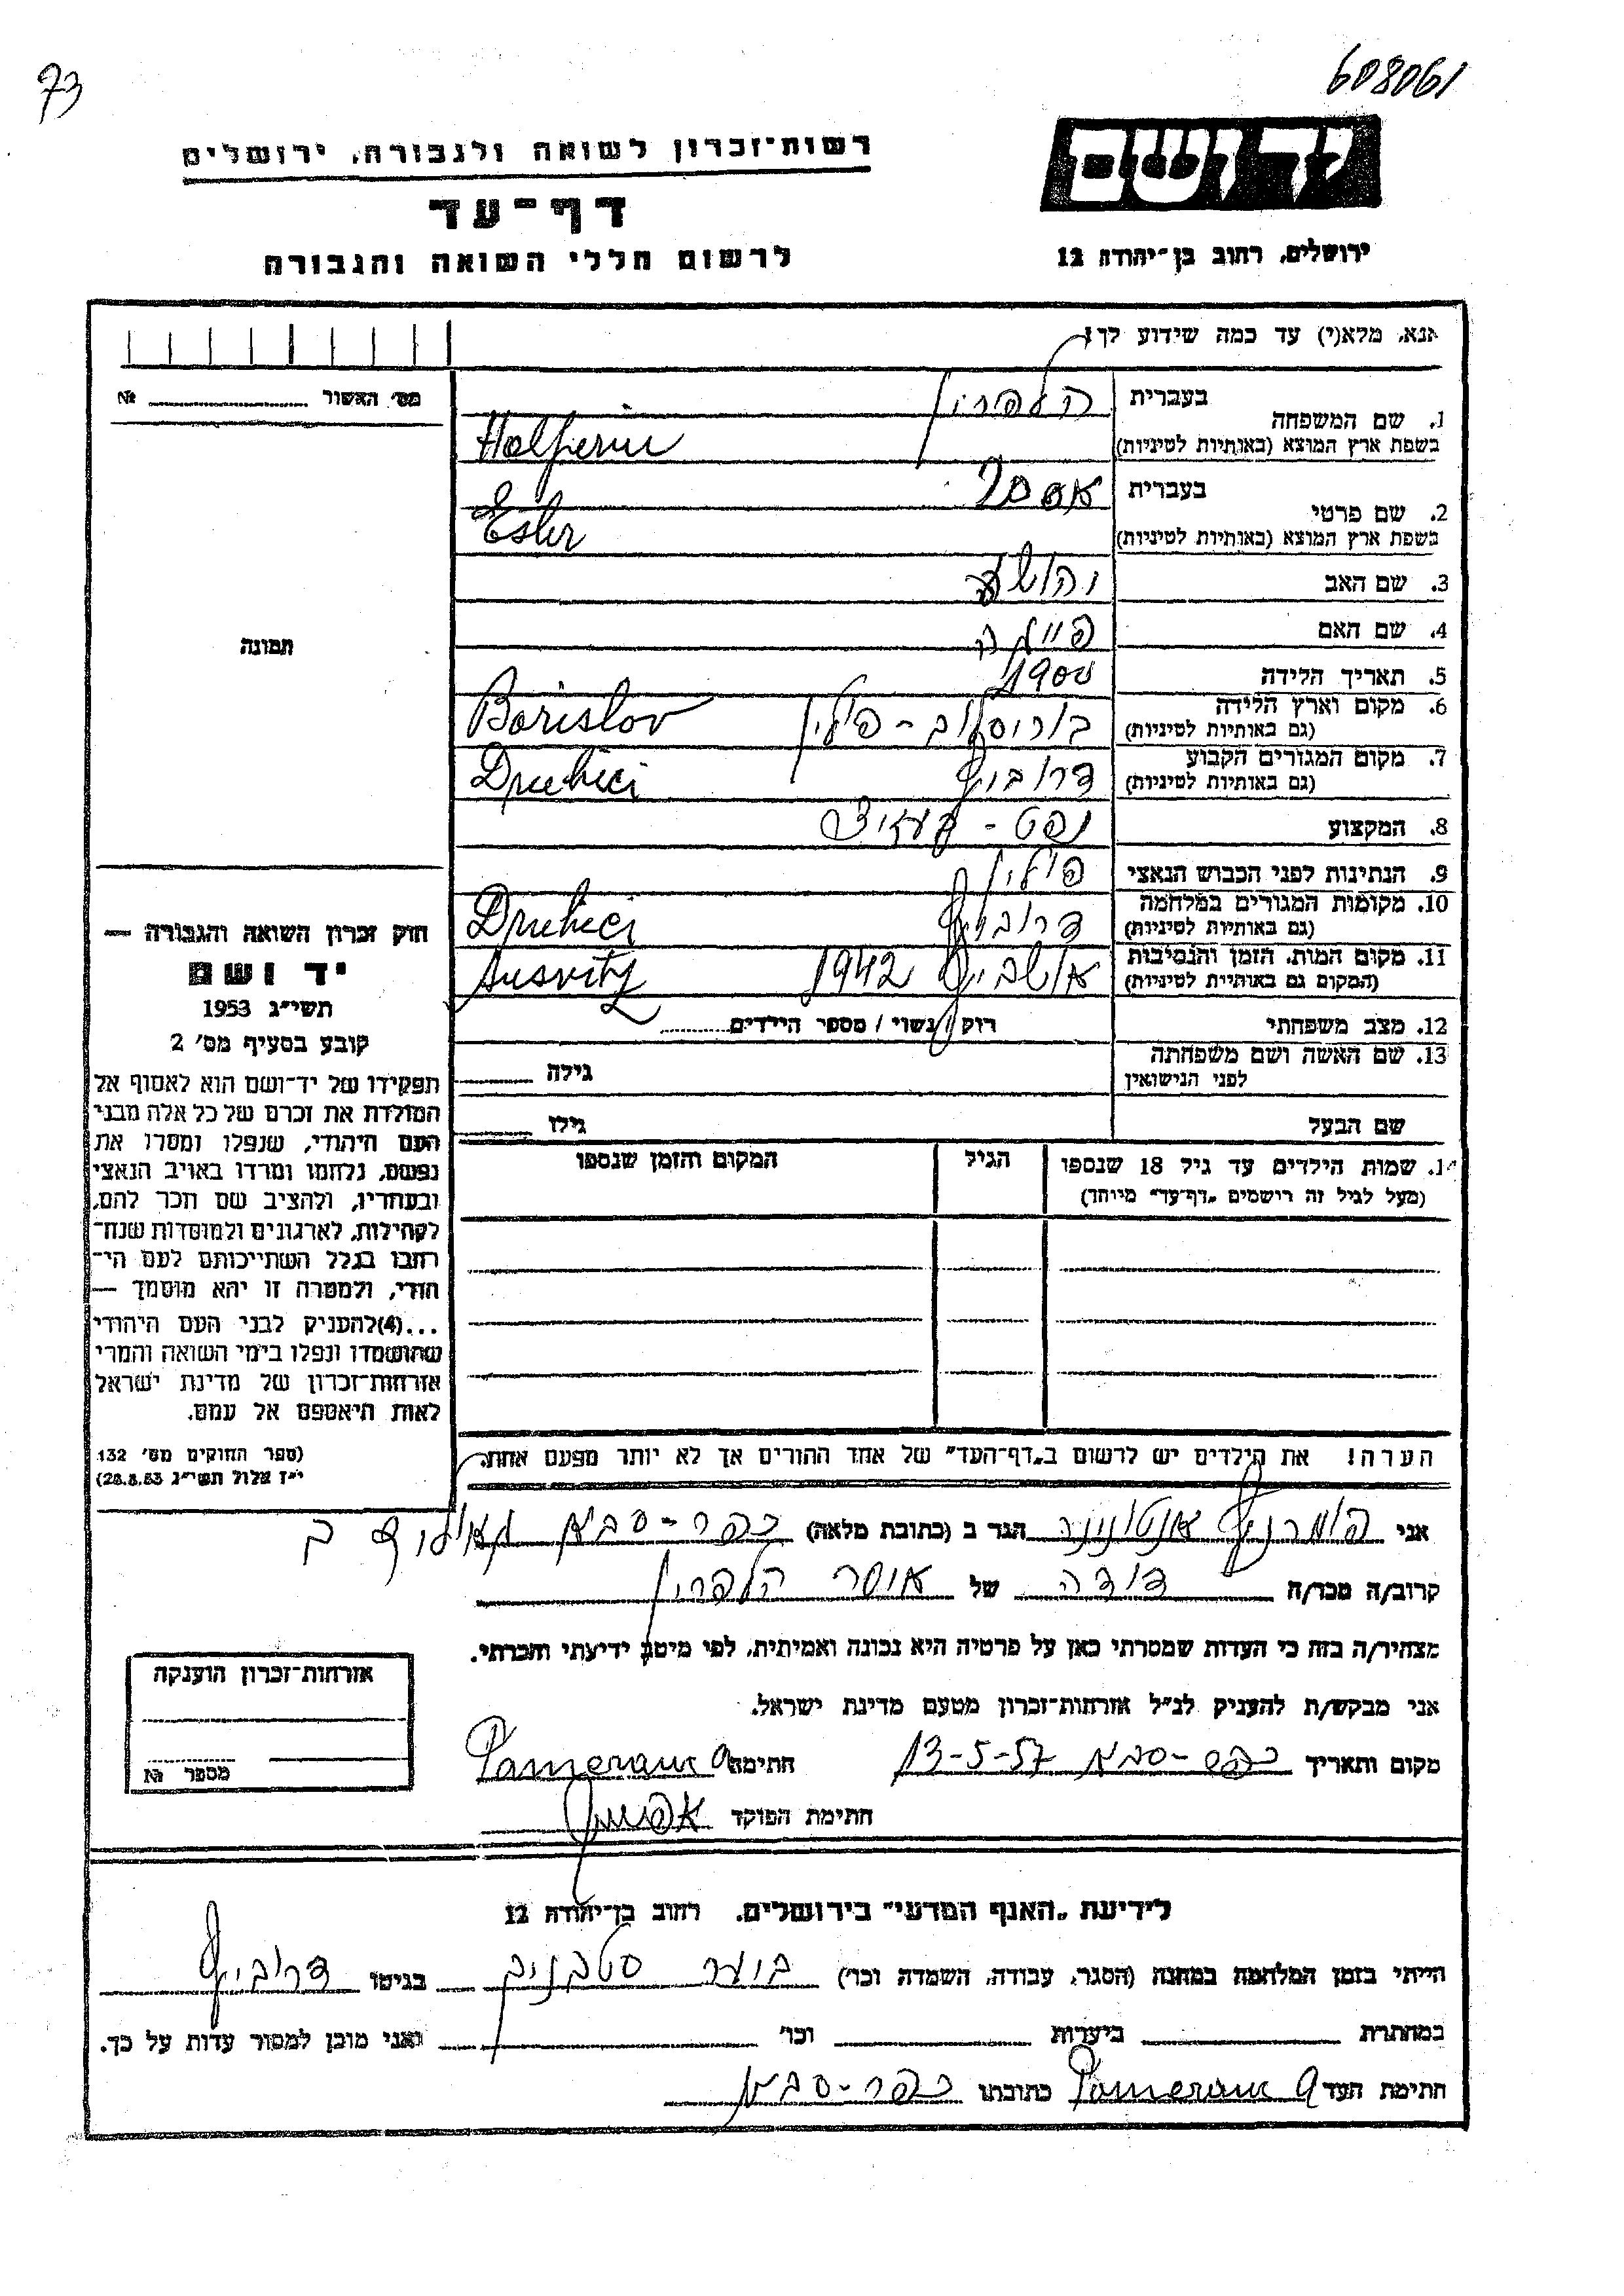 73
608061
יד ושם
רשות־זכרון לשואה ולגבורה, ירושלים
דף־עד
לרשום חללי השואה והגבורה
ירושלים, רחוב בן־יהודה 12
אנא, מלא(י) עד כמה שידוע לך!
מס׳ האשור № 
1. שם המשפחה בעברית הלפרין
בשפת ארץ המוצא (באותיות לטיניות) Halperin
2. שם פרטי בעברית
בשפת ארץ המוצא (באותיות לטיניות) Ester
3. שם האב יהושע
4. שם האם
5. תאריך הלידה 1900
6. מקום וארץ הלידה (גם באותיות לטיניות) בוריסלוב - פולין Borislov
7. מקום המגורים הקבוע (גם באותיות לטיניות) דרוביץ Druhici
8. המקצוע נפט -
9. הנתינות לפני הכבוש הנאצי פולין
10. מקומות המגורים במלחמה (גם באותיות לטיניות) דרוביץ Druhici
11. מקום המות, הזמן והנסיבות (המקום גם באותיות לטיניות) אושביץ 1942 Ausvitz
12. מצב משפחתי רוק / נשוי / מספר הילדים
13. שם האשה ושם משפחתה לפני הנישואין גילה
שם הבעל גילו
תמונה
חוק זכרון השואה והגבורה —
יד ושם
תשי״ג 1953
קובע בסעיף מס׳ 2
תפקידו של יד־ושם הוא לאסוף אל
המולדת את זכרם של כל אלה מבני
העם היהודי, שנפלו ומסרו את
נפשם, נלחמו ומרדו באויב הנאצי
ובעוזריו, ולהציב שם וזכר להם,
לקהילות, לארגונים ולמוסדות שנח־
רבו בגלל השתייכותם לעם הי־
הודי, ולמטרה זו יהא מוסמך —
...(4)להעניק לבני העם היהודי
שהושמדו ונפלו בימי השואה והמרי
אזרחות־זכרון של מדינת ישראל
לאות היאספם אל עמם.
(ספר החוקים מס׳ 132
י״ז אלול תשי״ג 28.8.53)
14. שמות הילדים עד גיל 18 שנספו הגיל המקום והזמן שנספו
(מעל לגיל זה רושמים „דף־עד״ מיוחד)
הערה! את הילדים יש לרשום ב„דף־העד״ של אחד ההורים אך לא יותר מפעם אחת.
אני פומרנץ הגר ב (כתובת מלאה) כפר-סבא
קרוב/ה מכר/ה דודה של אוסר הלפרין
מצהיר/ה בזה כי העדות שמסרתי כאן על פרטיה היא נכונה ואמיתית, לפי מיטב ידיעתי והכרתי.
אני מבקש/ת להעניק לנ״ל אזרחות־זכרון מטעם מדינת ישראל.
מקום ותאריך כפר-סבא 13-5-57 חתימה Pameranc
חתימת הפוקד
אזרחות־זכרון הוענקה
מספר №
לידיעת „האגף המדעי״ בירושלים, רחוב בן־יהודה 12
הייתי בזמן המלחמה במחנה (הסגר, עבודה, השמדה וכו׳) בגיטו דרוביץ
במחתרת ביערות וכו׳ ואני מוכן למסור עדות על כך.
חתימת העד Pameranc כתובתו כפר-סבא